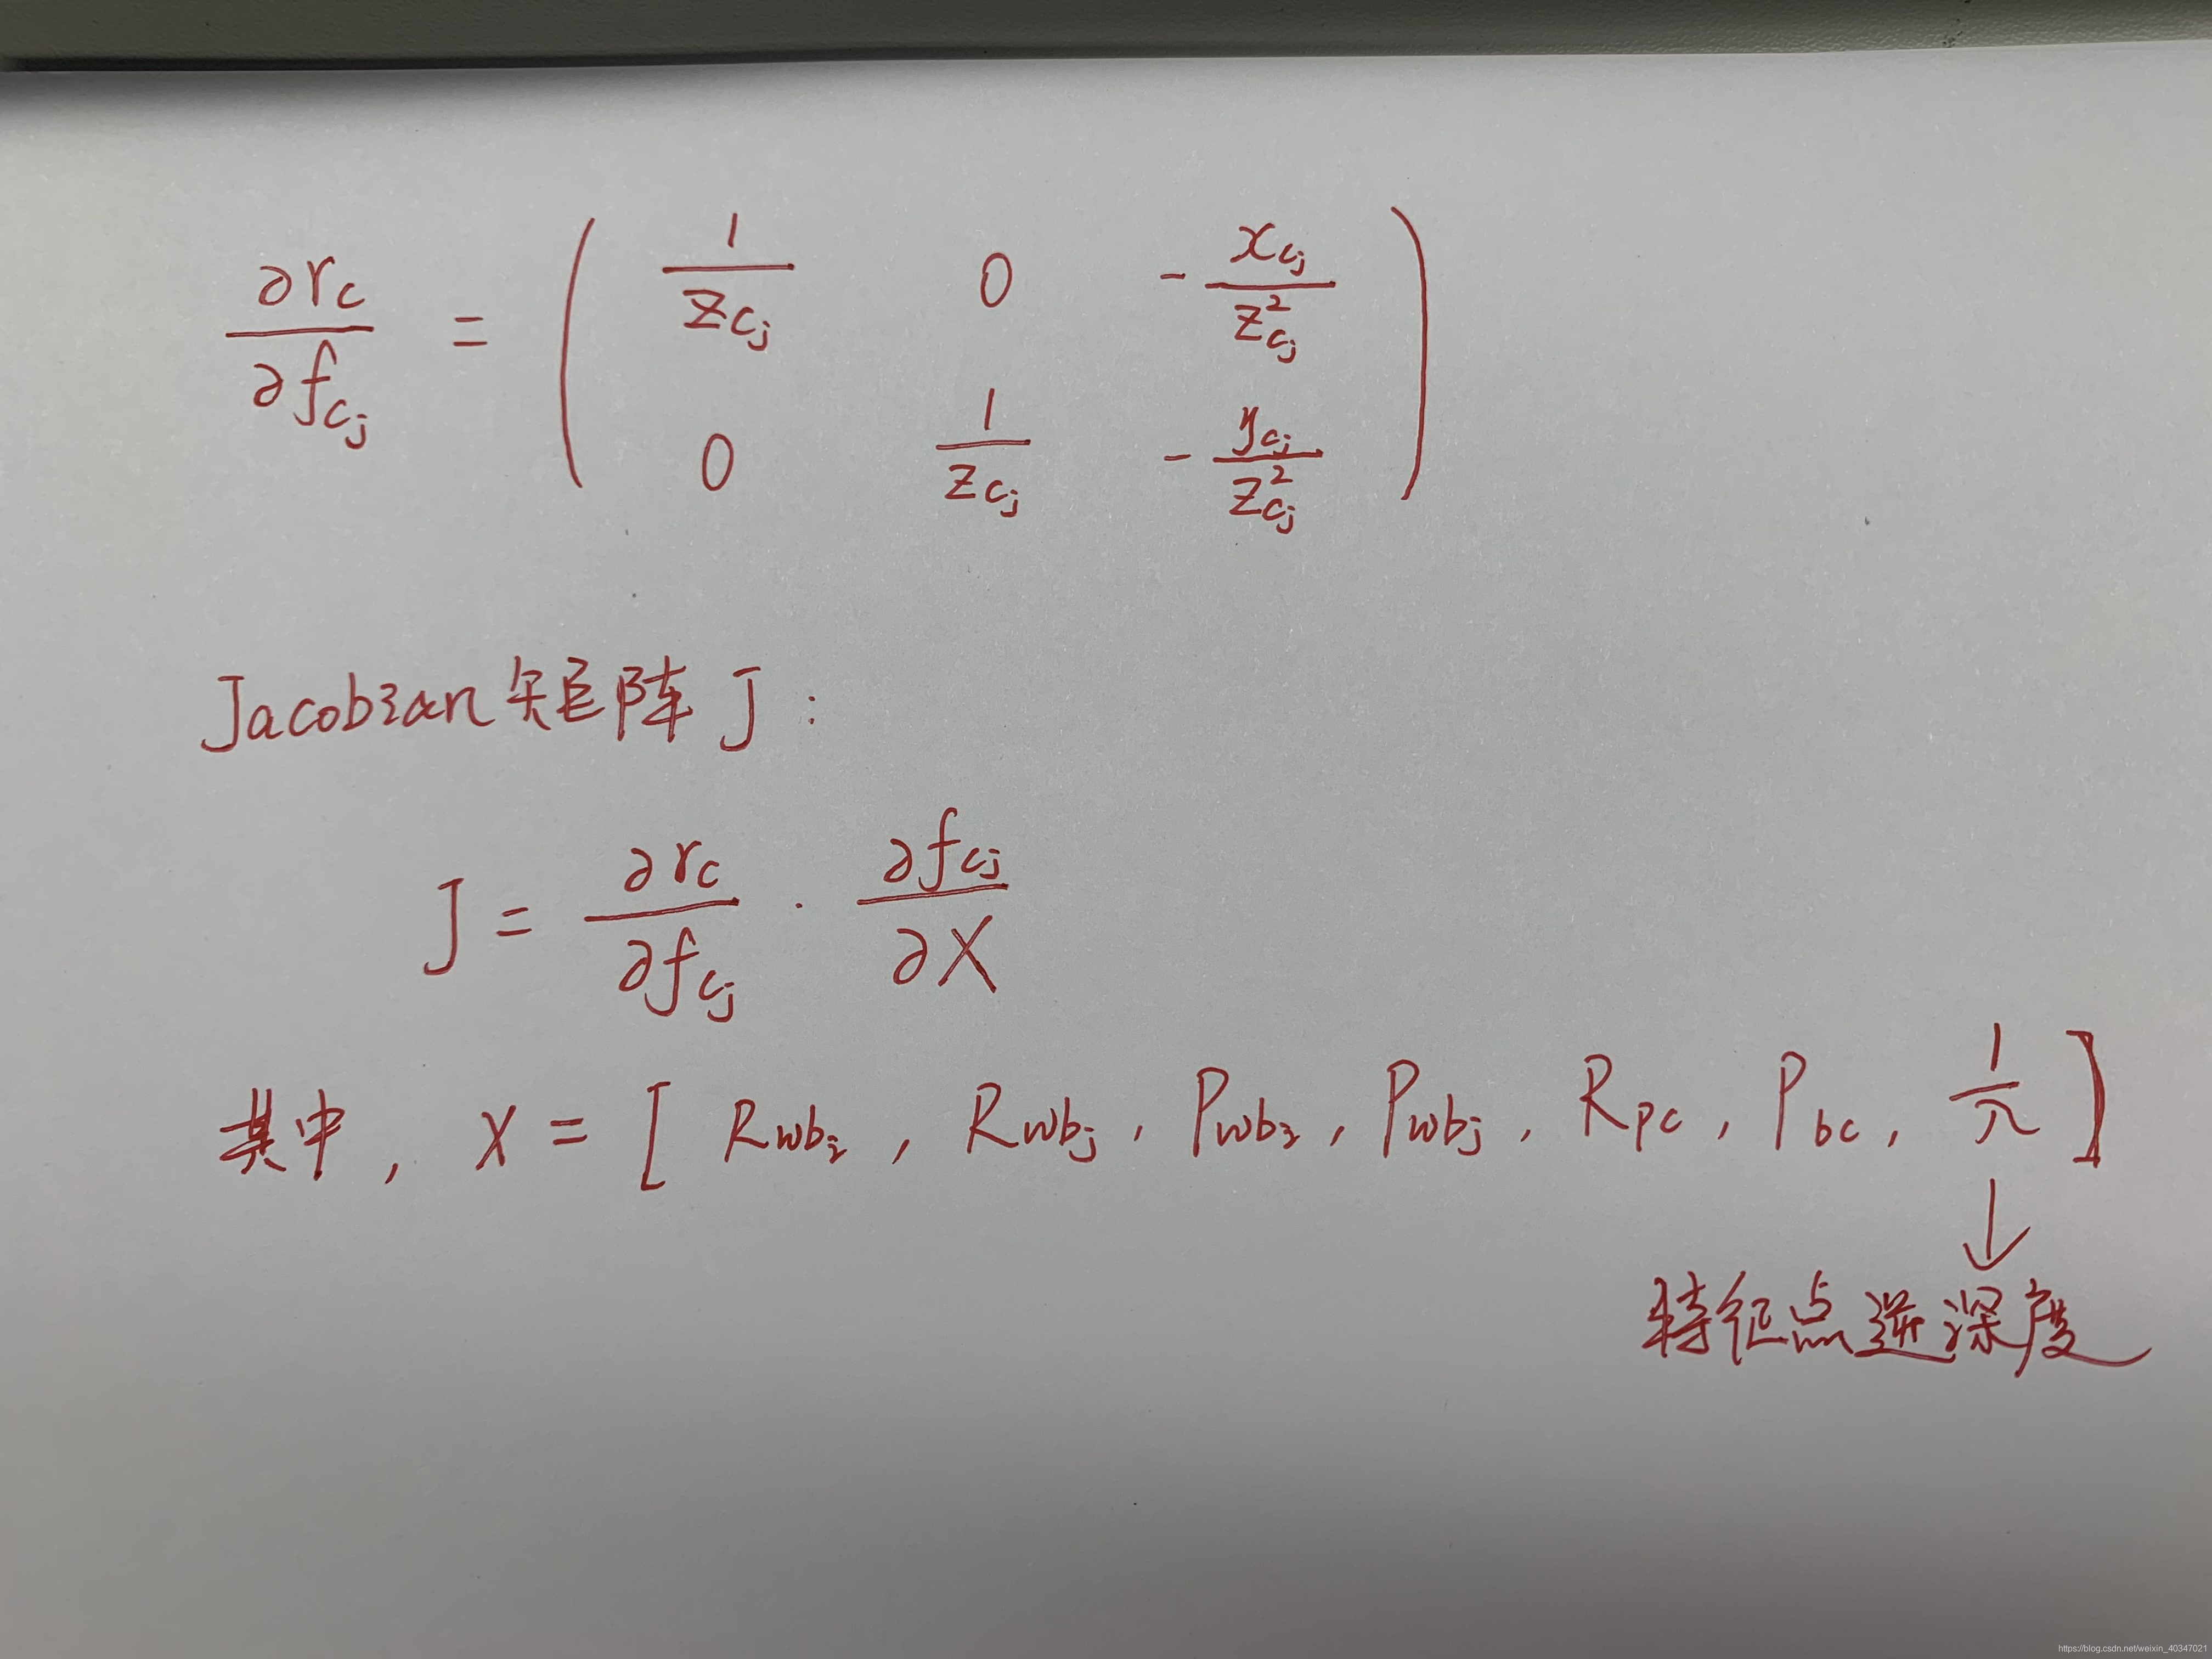 ∂r_c / ∂f_{c_j} = ( 1/z_{c_j}  0  -x_{c_j}/z_{c_j}^2
0  1/z_{c_j}  -y_{c_j}/z_{c_j}^2 )
Jacobian矩阵 J :
J = ∂r_c / ∂f_{c_j} · ∂f_{c_j} / ∂X
其中, X = [ R_{wb_i}, R_{wb_j}, P_{wb_i}, P_{wb_j}, R_{pc}, P_{bc}, 1/λ ]
↓
特征点逆深度
https://blog.csdn.net/weixin_40347021